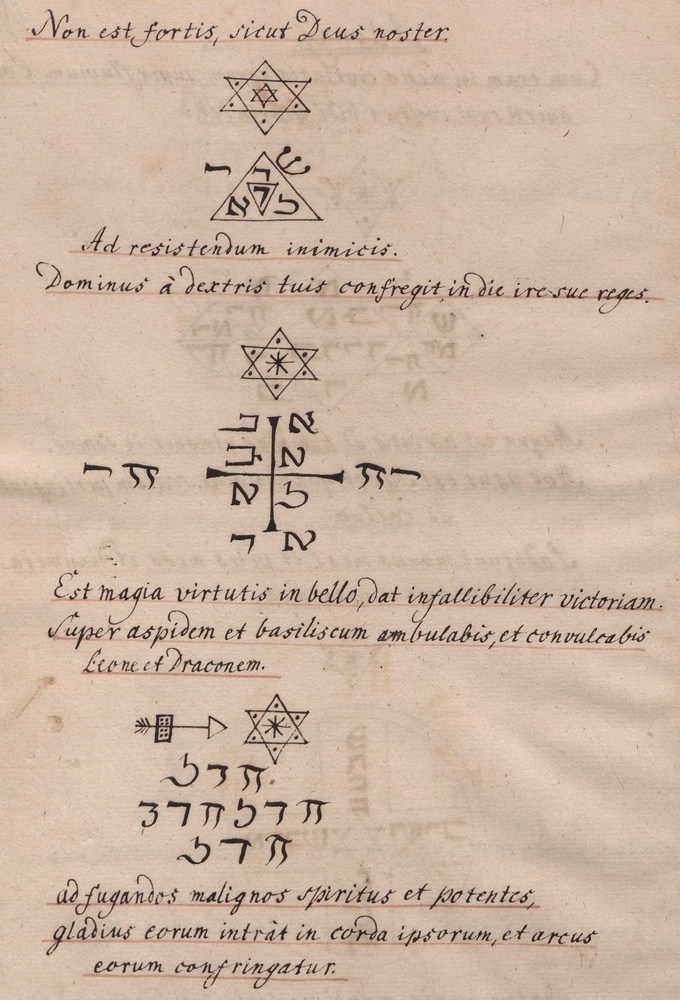 Non est fortis, sicut Deus noster.
Ad resistendum inimicis.
Dominus à dextris tuis confregit in die ire sue reges.
Est magia virtutis in bello, dat infallibiliter victoriam.
Super aspidem et basiliscum ambulabis, et convulcabis
Leone et Draconem.
חדל
חדלחדל
חדל
ad fugandos malignos spiritus et potentes,
gládius eorum intràt in corda ipsorum, et arcus
eorum confringatur.